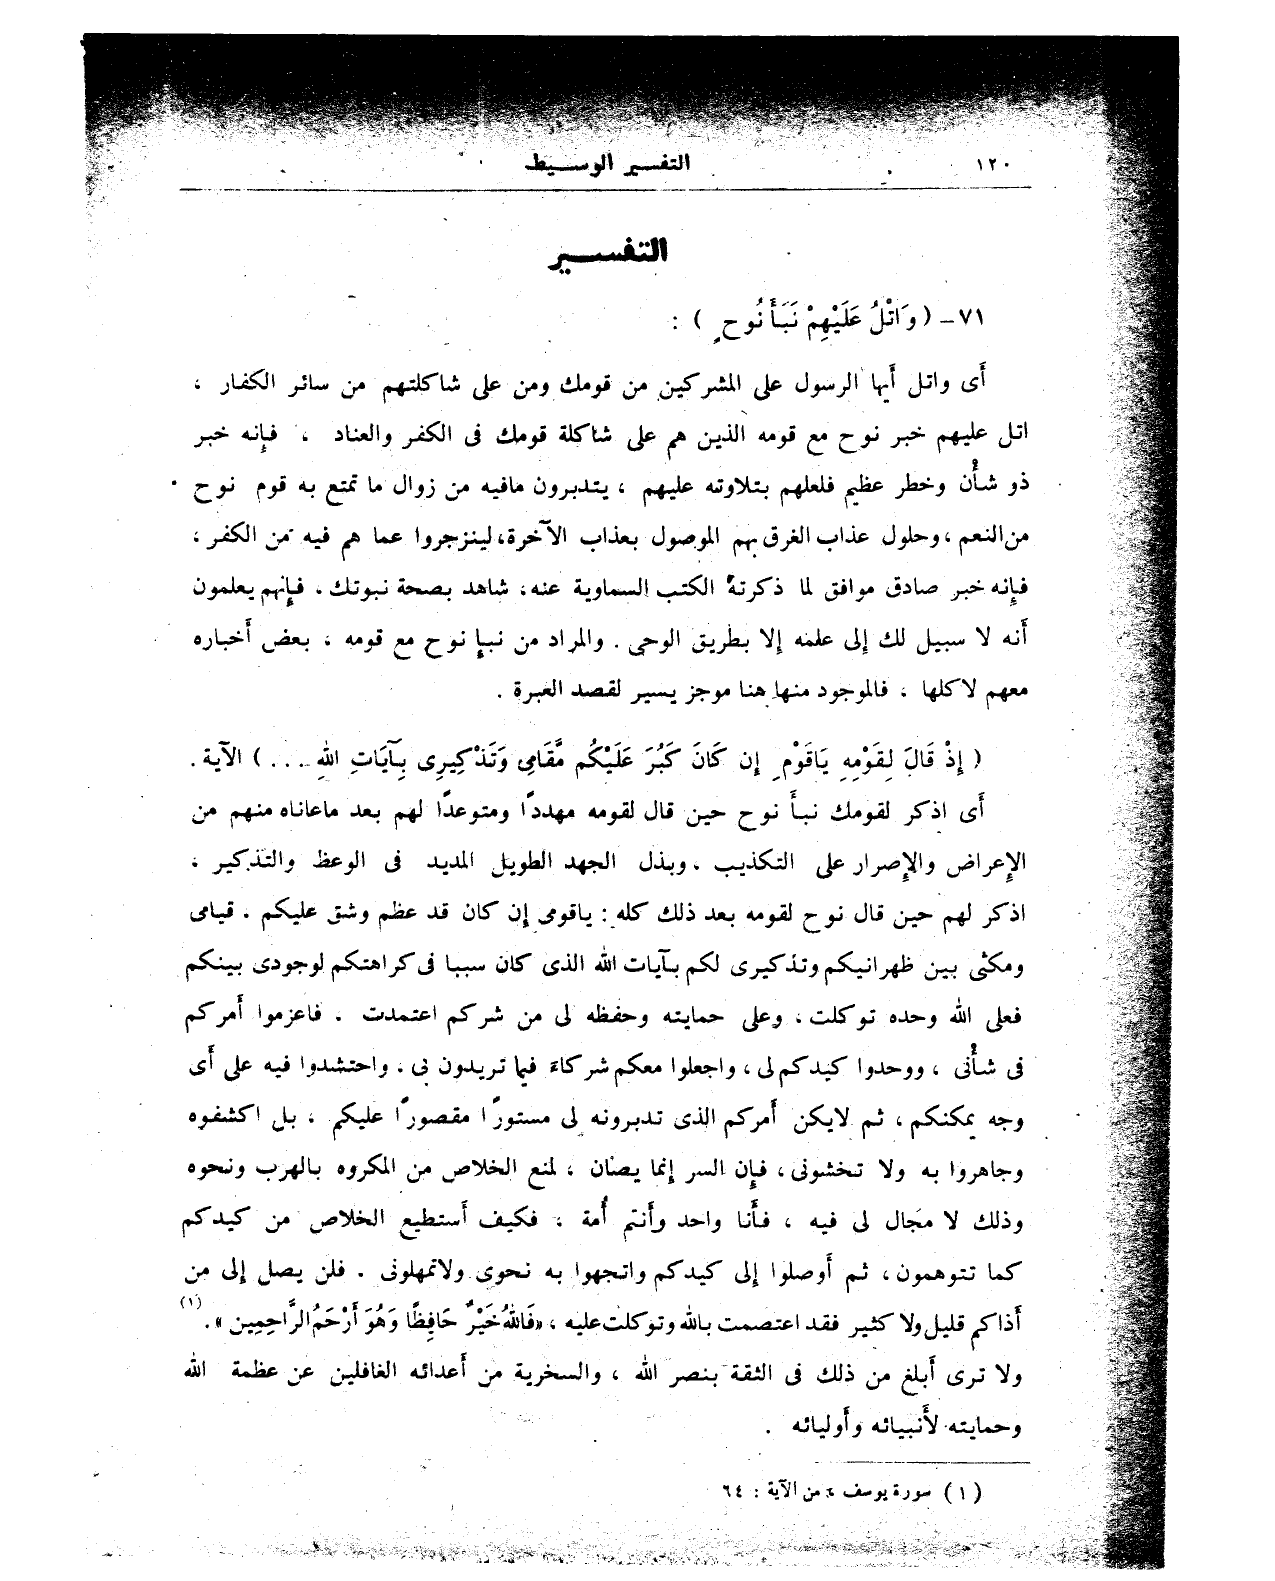 ١٢٠
التفسير الوسيط
التفسير
٧١- ( وَاتْلُ عَلَيْهِمْ نَبَأَ نُوحٍ ) :
أَى واتل أَيها الرسول على المشركين من قومك ومن على شاكلتهم من سائر الكفار ،
اتل عليهم خبر نوح مع قومه الذين هم على شاكلة قومك فى الكفر والعناد ، فإنه خبر
ذو شأْن وخطر عظيم فلعلهم بتلاوته عليهم ، يتدبرون مافيه من زوال ما تمتع به قوم نوح
من النعم ، وحلول عذاب الغرق بهم الموصول بعذاب الآخرة، لينزجروا عما هم فيه من الكفر ،
فإنه خبر صادق موافق لما ذكرته الكتب السماوية عنه ، شاهد بصحة نبوتك ، فإنهم يعلمون
أَنه لا سبيل لك إلى علمه إلا بطريق الوحى . والمراد من نبإ نوح مع قومه ، بعض أَخباره
معهم لا كلها ، فالموجود منها هنا موجز يسير لقصد العبرة .
( إِذْ قَالَ لِقَوْمِهِ يَاقَوْمِ إِن كَانَ كَبُرَ عَلَيْكُم مَّقَامِى وَتَذْكِيرِى بِآيَاتِ اللهِ ... ) الآية .
أَى اذكر لقومك نبأَ نوح حين قال لقومه مهددًا ومتوعدًا لهم بعد ماعاناه منهم من
الإعراض والإصرار على التكذيب . وبذل الجهد الطويل المديد فى الوعظ والتذكير ،
اذكر لهم حين قال نوح لقومه بعد ذلك كله : ياقومى إن كان قد عظم وشق عليكم . قيامى
ومكثى بين ظهرانيكم وتذكيرى لكم بآيات الله الذى كان سببا فى كراهتكم لوجودى بينكم
فعلى الله وحده توكلت ، وعلى حمايته وحفظه لى من شركم اعتمدت . فاعزموا أَمركم
فى شأْنى ، ووحدوا كيدكم لى ، واجعلوا معكم شركاءَ فيما تريدون بى ، واحتشدوا فيه على أَى
وجه يمكنكم ، ثم لايكن أَمركم الذى تدبرونه لى مستورًا مقصورًا عليكم ، بل اكشفوه
وجاهروا به ولا تخشونى ، فإن السر إنما يصان ، لمنع الخلاص من المكروه بالهرب ونحوه
وذلك لا مجال لى فيه ، فأَنا واحد وأَنتم أُمة ، فكيف أَستطيع الخلاص من كيدكم
كما تتوهمون ، ثم أَوصلوا إلى كيدكم واتجهوا به نحوى ولا تمهلونى . فلن يصل إلى من
أَذاكم قليل ولا كثير فقد اعتصمت بالله وتوكلت عليه ، «فَاللهُ خَيْرٌ حَافِظًا وَهُوَ أَرْحَمُ الرَّاحِمِينَ» . (١)
ولا ترى أَبلغ من ذلك فى الثقة بنصر الله ، والسخرية من أَعدائه الغافلين عن عظمة الله
وحمايته لأَنبيائه وأَوليائه .
(١) سورة يوسف من الآية : ٦٤